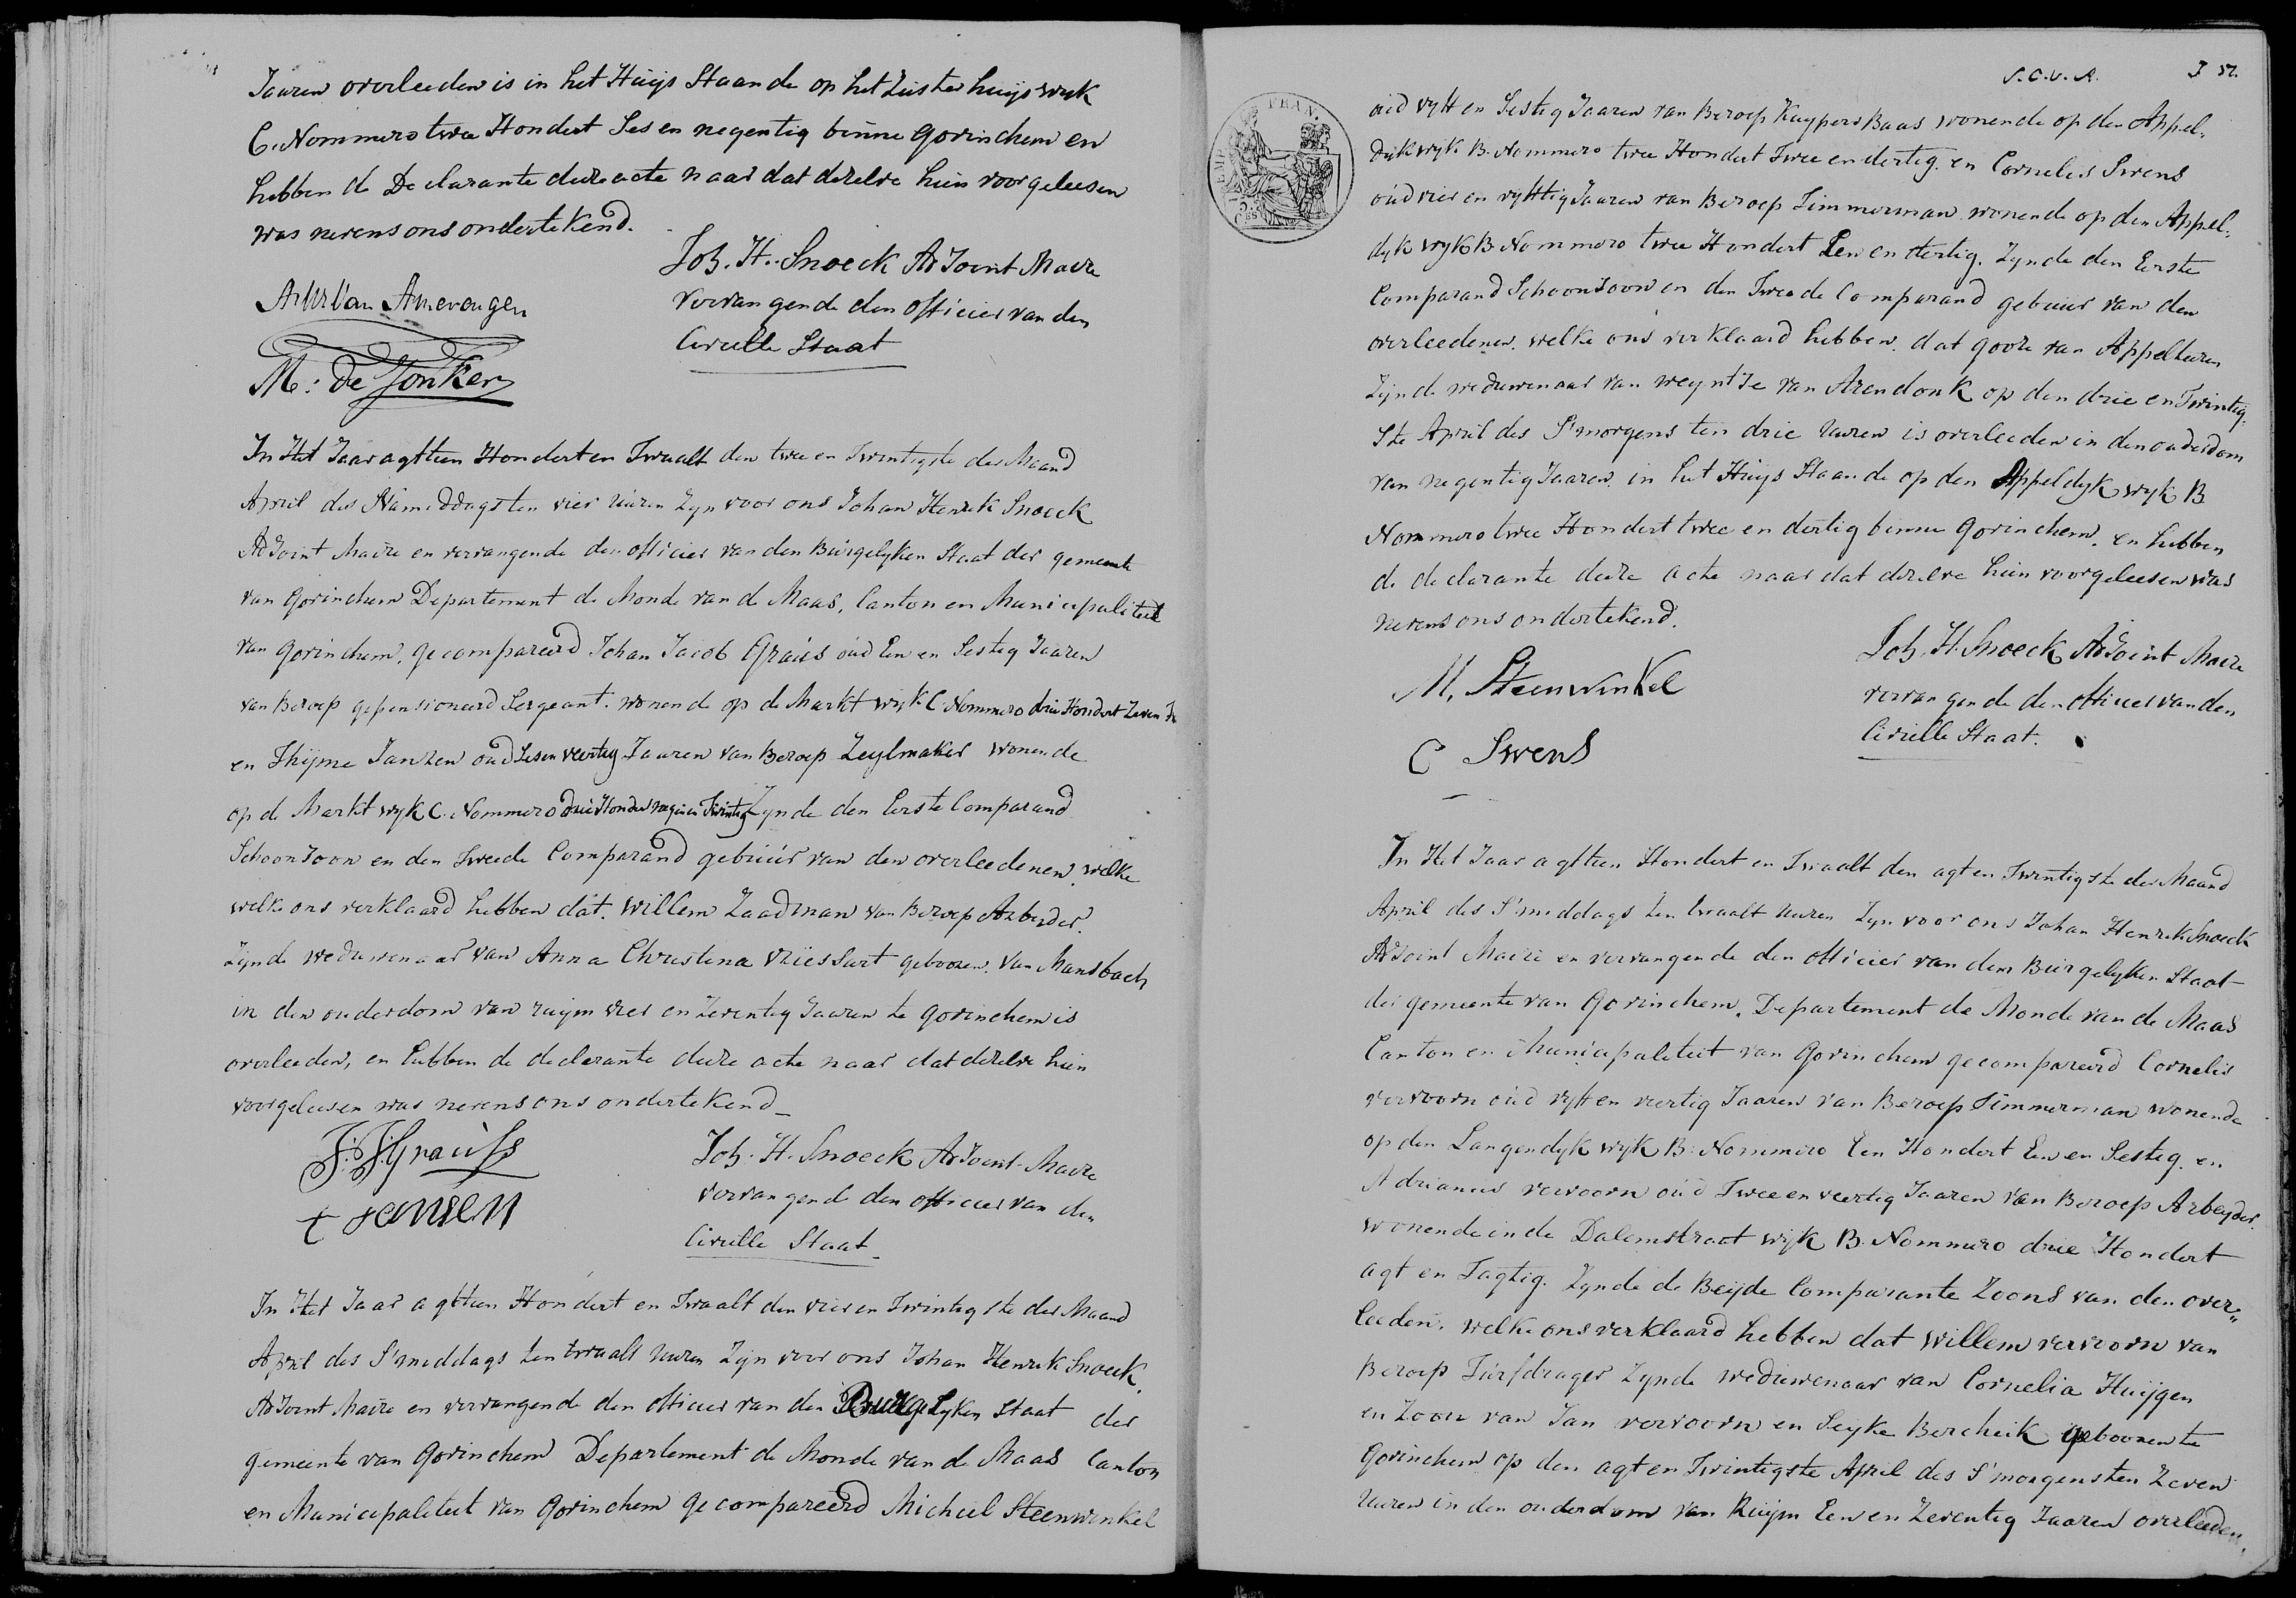 Jaaren overleeden is in het Huijs Staande op het Zusterhuijs wyk
C. Nommero twee Hondert Ses en negentig binne Gorinchem en
hebben de Declarante deeze acte naar dat dezelve hun voorgeleesen
was nevens ons ondertekend.
Joh. H. Snoeck AdJoint Maire
vervangende den officier van den
Civielle Staat
Van Amerongen
M: de Jonker
In Het Jaar agttien Hondert en Twaalf den twee en Twintigste der Maand
April des Nameddags ten vier Uuren Zyn voor ons Johan Henrik Snoeck
AdJoint Maire en vervangende den officier van den Burgelyken Staat der gemeente
van Gorinchem Departement de Monde van de Maas, Canton en Municipaliteit
van Gorinchem, gecompareerd Johan Jacob Graus oud Een en Sestig Jaaren
van Beroep gepensioneerd Sergeant. wonende op de Markt wyk C Nommero drie Hondert Zeven
en Thijme Janzen oud Ses en veertig Jaaren van Beroep Zeylmaker wonende
op de Markt wyk C. Nommero drie Hondert negen en Twintig Zynde den Eerste Comparand
Schoonzoon en den Tweede Comparand gebuur van den overleedenen, welke
welke ons verklaard hebben dat. Willem Zaadman van Beroep Arbeider.
Zijnde weduwenaar van Anna Christina geboren van Mansbach
in den ouderdom van ruijm vier en Zeventig Jaaren te Gorinchem is
overleeden, en hebben de declarante deeze acte naar dat dezelve hun
voorgeleesen was nevens ons ondertekend_
J: J: Grauss
Joh. H. Snoeck AdJoint Maire
vervangende den officier van den
Civielle Staat
t Jansen
In Het Jaar agttien Hondert en Twaalf den vier en Twintigste der Maand
April des S'middags ten twaalf Uuren Zijn voor ons Johan Henrik Snoeck.
AdJoint Maire en vervangende den officier van den Burgelyken Staat der
gemeente van Gorinchem Departement de Monde van de Maas Canton
en Municipaliteit van Gorinchem gecompareerd Michiel Steenwinkel
S.C.v.A.
EMP. FRAN.
oud vyff en Sestig Jaaren van Beroep Kuypers Baas wonende op den Appel,
dijk wyk B Nommero twee Hondert Twee en dertig. en Cornelis Swens
oud vier en vyftig Jaaren van Beroep Timmerman wonende op den Appel,
dyk wyk B Nommero twee Hondert Een en dertig. Zynde den Eerste
Comparand Schoonzoon en den Tweede Comparand gebuur van den
overleedenen. welke ons verklaard hebben. dat Goore van Appelteren
Zijnde weduwenaar van Weyntje van Arendonk op den drie en Twintig,
ste April des S'morgens ten drie Uuren is overleeden in den ouderdom
van negentig Jaaren in het Huijs Staande op den Appeldyk wyk B
Nommero twee Hondert twee en dertig binne Gorinchem, en hebben
de declarante deeze acte naar dat dezelve hun voorgeleesen was
nevens ons ondertekend.
Joh. H. Snoeck AdJoint Maire
vervangende den officier van den
Civielle Staat.
M. Steenwinkel
C Swens
In Het Jaar agttien Hondert en Twaalf den agt en Twintigste der Maand
April des S'middags ten twaalf Uuren Zyn voor ons Johan Henrik Snoeck
AdJoint Maire en vervangende den officier van den Burgelyken Staat
der gemeente van Gorinchem. Departement de Monde van de Maas
Canton en Municipaliteit van Gorinchem gecompareerd Cornelis
vervoorn oud vyff en veertig Jaaren van Beroep Timmerman wonende
op den Langendyk wyk B: Nommero Een Hondert Een en Sestig. en
Adrianus vervoorn oud Twee en veertig Jaaren van Beroep Arbeyder.
wonende in de Dalemstraat wijk B. Nommero drie Hondert
agt en Tagtig. Zynde de Beyde Comparante Zoons van den over„
leeden. welke ons verklaard hebben dat Willem vervoorn van
Beroep Turfdrager Zynde weduwenaar van Cornelia Huijgen
en Zoon van Jan vervoorn en Seyke Bercheik geboren te
Gorinchem op den agt en Twintigste April des S'morgens ten Zeven
Uuren in den ouderdom van Ruijm Een en Zeventig Jaaren overleeden.